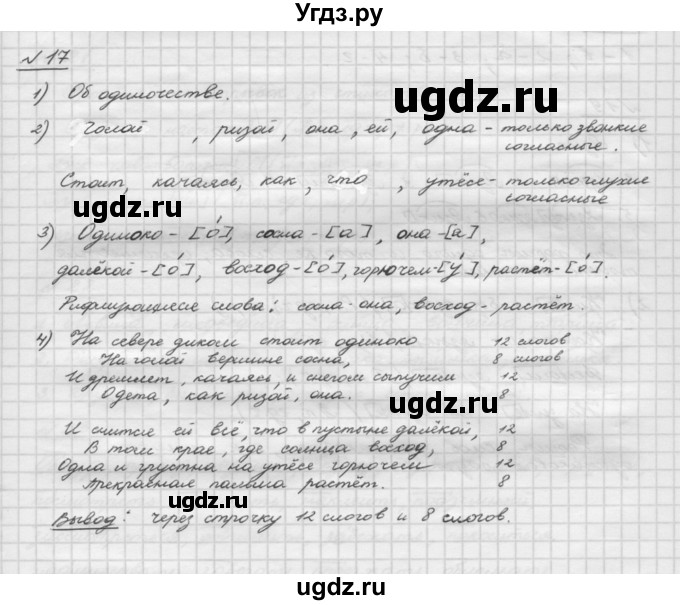 Угдз.ру
№ 17
1) Об одиночестве.
2) Голой , ризой, она, ей, одна - только звонкие согласные.
Стоит, качаясь, как, что , утёсе - только глухие согласные
3) Одиноко - [о́], сосна - [а], она - [а],
далёкой - [о́], восход - [о́], горючем - [у́], растёт - [о́].
Рифмующиеся слова: сосна - она, восход - растёт.
4) На севере диком стоит одиноко 12 слогов
На голой вершине сосна, 8 слогов
И дремлет, качаясь, и снегом сыпучим 12
Одета, как ризой, она. 8
И снится ей всё, что в пустыне далёкой, 12
В том крае, где солнца восход, 8
Одна и грустна на утёсе горючем 12
Прекрасная пальма растёт. 8
Вывод: через строчку 12 слогов и 8 слогов.
ugdz.ru
ugdz.ru
ugdz.ru
ugdz.ru
ugdz.ru
ugdz.ru
ugdz.ru